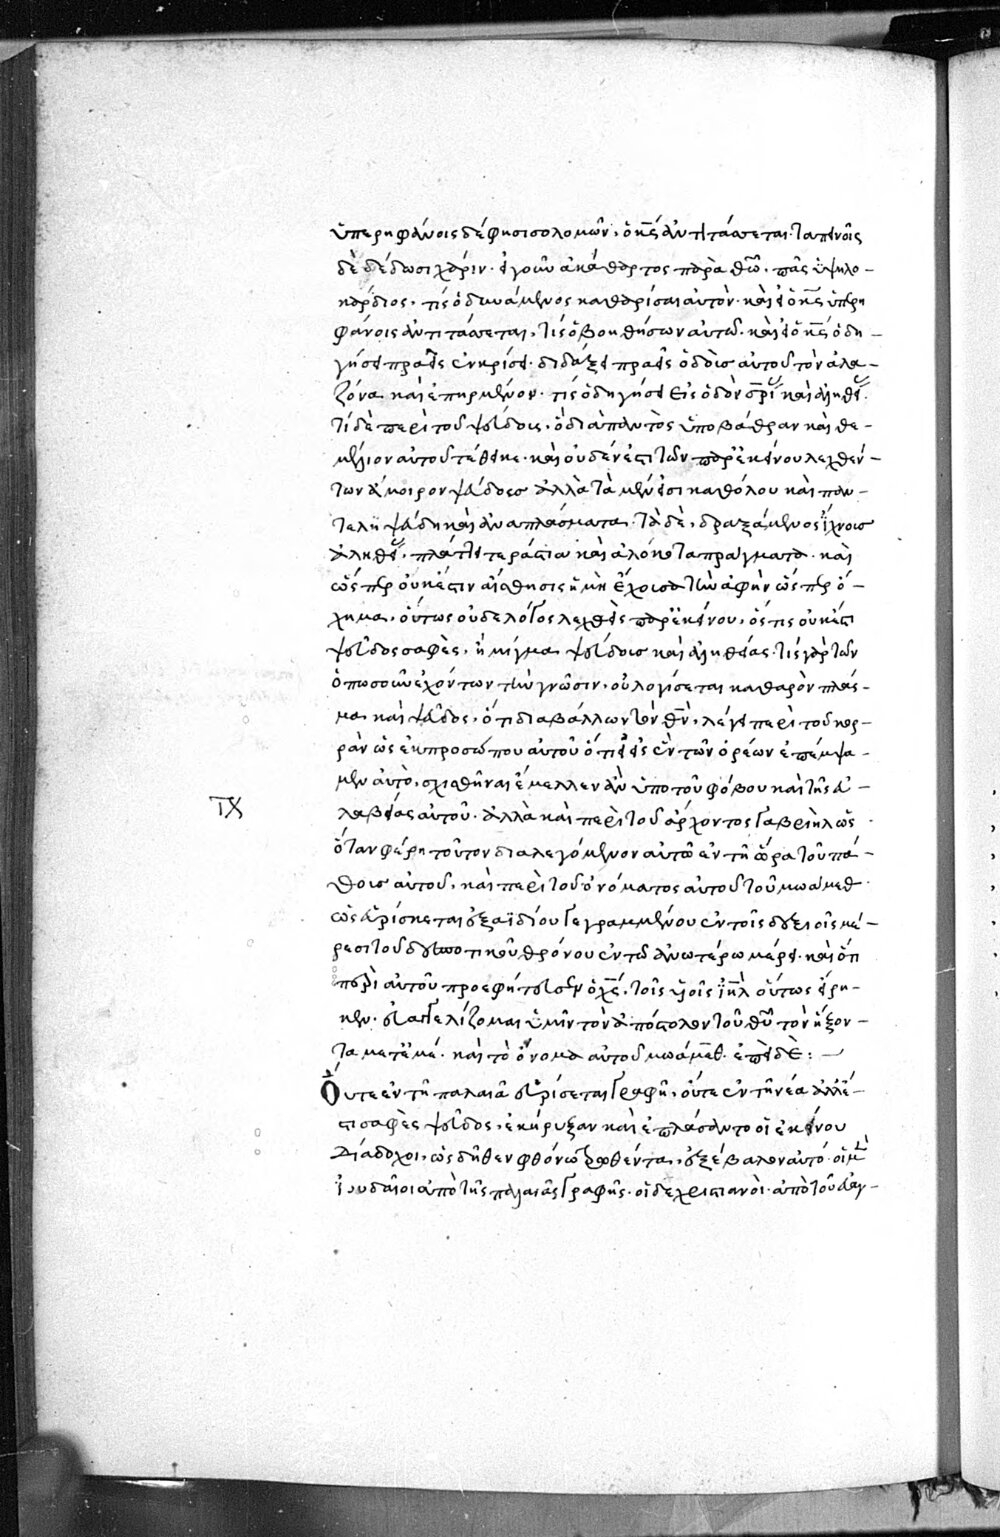 ὑπερηφάνοις δέ φησι σολομῶν, ὁ κ̅ς ἀντιτάσσεται· ταπεινοῖς
δὲ δίδωσι χάριν· ἤγουν ἀκάθαρτος παρὰ θ̅ω̅ πᾶς ὑψηλο-
κάρδιος, τίς ὁ δυνάμενος καθαρίσαι αὐτόν· καὶ εἰ ὁ κ̅ς ὑπερη
φάνοις ἀντιτάσσεται, τίς ὁ βοηθήσων αὐτῶ· καὶ εἰ ὁ κ̅ς ὁδη-
γήσει πραεῖς ἐν κρίσει· διδάξει πραεῖς ὁδοὺς αὐτοῦ τὸν ἀλα-
ζόνα καὶ ἐπηρμένον· τίς ὁδηγήσει εἰς ὁδὸν σ̅ρ̅ι̅ καὶ ἀληθεί·
τί δὲ περὶ τοῦ ψεύδους, ὃ διὰ παντὸς ὑποβάθραν καὶ θε-
μέλιον αὐτοῦ τέθεικε· καὶ οὐδέν ἐστι τῶν παρ' ἐκείνου λεχθέν-
των ἄμοιρον ψεύδους ἀλλὰ τὰ μέν εἰσι καθόλου καὶ παν-
τελῆ ψεύδη καὶ ἀναπλάσματα· τὰ δὲ, δραξάμενος ἴχνους
ἀληθεί, πλάττει τεράστια καὶ ἀλόκοτα πράγματα· καὶ
ὥσπερ οὐκ ἔστιν αἴσθησις ἡ μὴ ἔχουσα τὴν ἁφὴν ὥσπερ ὄ-
χημα, οὕτως οὐδὲ λόγος λεχθεὶς παρ' ἐκείνου, ὅστις οὐκ ἔστι
ψεῦδος σαφὲς, ἢ μίγμα ψεύδους καὶ ἀληθείας· τίς γὰρ τῶν
ὁπωσοῦν ἐχόντων τὴν γνῶσιν, οὐ λογίσεται καθαρὸν πλάσ-
μα καὶ ψεῦδος, ὅτι διαβάλλων τὸν θ̅ν̅, λέγει περὶ τοῦ κορ-
ρὰν ὡς ἐκ προσώπου αὐτοῦ ὅτι εἰ εἰς ἓν τῶν ὀρέων ἐπέμψα-
μεν αὐτὸ, σχισθῆναι ἔμελλεν ἂν ὑπὸ τοῦ φόβου καὶ τῆς εὐ-
λαβείας αὐτοῦ· ἀλλὰ καὶ περὶ τοῦ ἄρχοντος γαβριὴλ ὡς
ὅταν φέρη τοῦτον διαλεγόμενον αὐτῶ ἐν τῆ ὥρα τοῦ πά-
θους αὐτοῦ, καὶ περὶ τοῦ ὀνόματος αὐτοῦ τοῦ μωάμεθ
ὡς εὑρίσκεται ἐξ ἀϊδίου γεγραμμένου ἐν τοῖς δεξιοῖς μέ-
ρεσι τοῦ δεσποτικοῦ θρόνου ἐν τῶ ἀνωτέρω μέρει· καὶ ὅτι
περὶ αὐτοῦ προεφήτευσεν ὁ χ̅ς̅, τοῖς υἱοῖς ι̅η̅λ οὕτως εἰρη-
κεν· εὐαγγελίζομαι ὑμῖν τὸν ἀπόστολον τοῦ θ̅υ̅ τὸν ἥξον-
τα μετ' ἐμέ· καὶ τὸ ὄνομα αὐτοῦ μωάμεθ· ἐπεὶ δὲ :—
Οὔτε ἐν τῆ παλαιᾶ εὑρίσεται γραφῆ, οὔτε ἐν τῆ νέα ἀλλ' ἔ-
στι σαφὲς ψεῦδος, ἐκήρυξαν καὶ ἐπλάσαντο οἱ ἐκείνου
διάδοχοι, ὡς δῆθεν φθόνω τρωθέντα, ἐξέβαλον αὐτό· οἱ μὲν
ἰουδαῖοι ἀπὸ τῆς παλαιᾶς γραφῆς· οἱ δὲ χριστιανοὶ· ἀπὸ τοῦ εὐαγ-